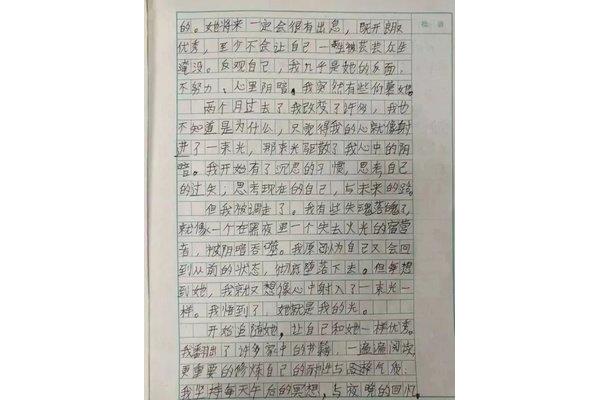 的。她将来一定会很有出息，既开朗又
优秀，至少不会让自己一生被芸芸众生
淹没。反观自己，我几乎是她的反面，
不努力、心里阴暗。我突然有些仰慕她。
两个月过去了我改变了许多，我也
不知道是为什么，只觉得我的心就像射
进了一束光，那束光驱散了我心中的阴
暗。我开始有了沉思的习惯，思考自己
的过失，思考现在的自己，与未来的路。
但我被调走了。我有些失魂落魄了，
就像一个在黑夜里一个失去火光的宿营
者，被阴暗吞噬。我原因为自己又会回
到从前的状态，彻底堕落下去。但每想
到她，我就又想像心中射入了一束光一
样。我悟到了，她就是我的光。
开始追随她，让自己和她一样优秀。
我翻出了许多家中的书籍，一遍遍阅读，
更重要的修炼自己的耐性与气质，
我坚持每天午后的冥想，与夜晚的回忆，